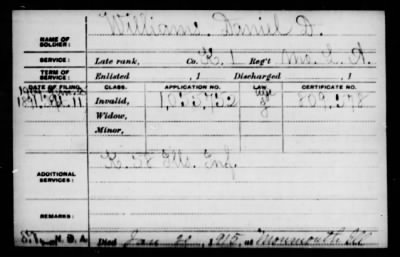 NAME OF SOLDIER: Williams, Daniel D.
SERVICE: Late rank, Co. K, 1 Reg't Mo. L. A.
TERM OF SERVICE: Enlisted , 1 Discharged , 1
DATE OF FILING. CLASS. APPLICATION NO. LAW. CERTIFICATE NO.
Invalid, 1,053,752 809,578
Widow,
Minor,
ADDITIONAL SERVICES: K. 58 Ills. Inf.
REMARKS:
N. B. A. Died Jan , 1915, at Monmouth Ill